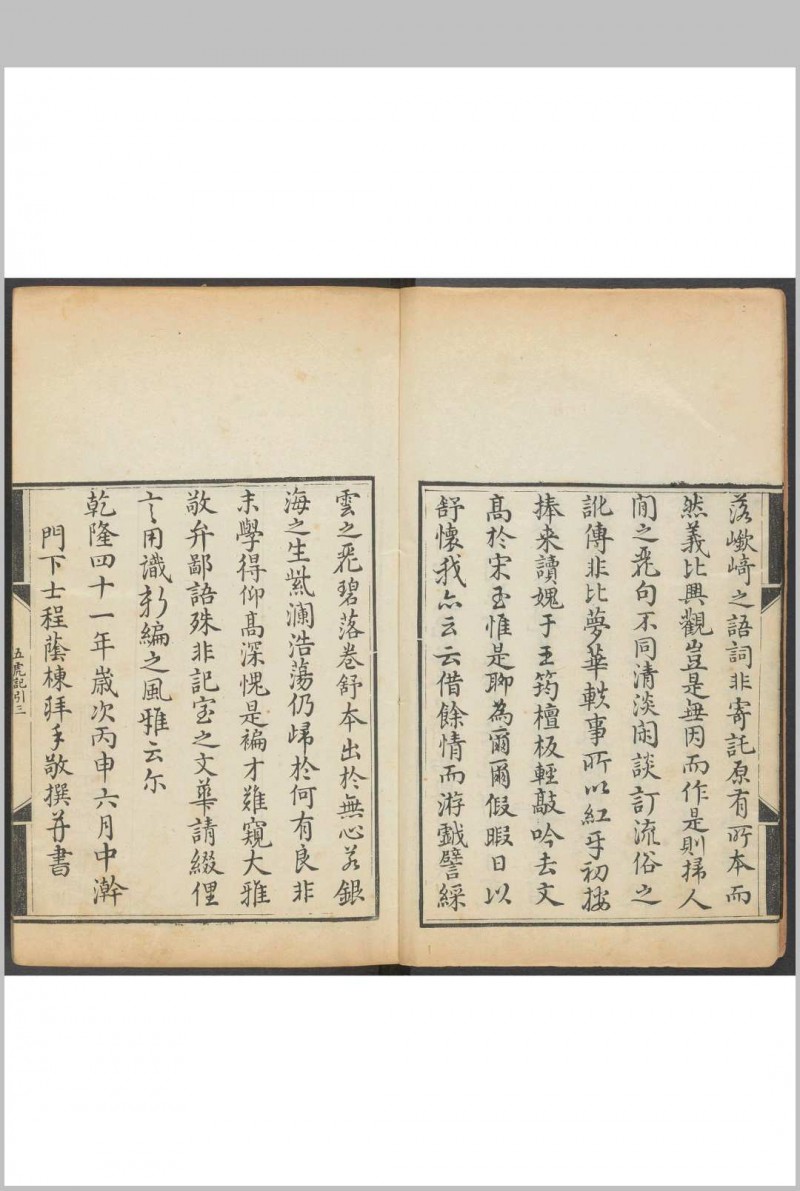 落嶔﨑之語詞非寄託原有所本而
然義比興觀豈是無因而作是則掃人
間之飛句不同清淡閒談訂流俗之
訛傳非比夢華軼事所以紅牙初按
捧来讀媿于王筠檀板輕敲吟去文
髙於宋玉惟是聊為爾爾假暇日以
舒懷我亦云云借餘情而游戲譬綵
雲之飛碧落卷舒本出於無心若銀
海之生紫瀾浩蕩仍歸於何有良非
末學得仰髙深愧是褊才難窺大雅
敬弁鄙語殊非記室之文華請綴俚
言用識新編之風雅云尔
乾隆四十一年歲次丙申六月中澣
門下士程蔭棟拜手敬撰并書
五虎記引 三